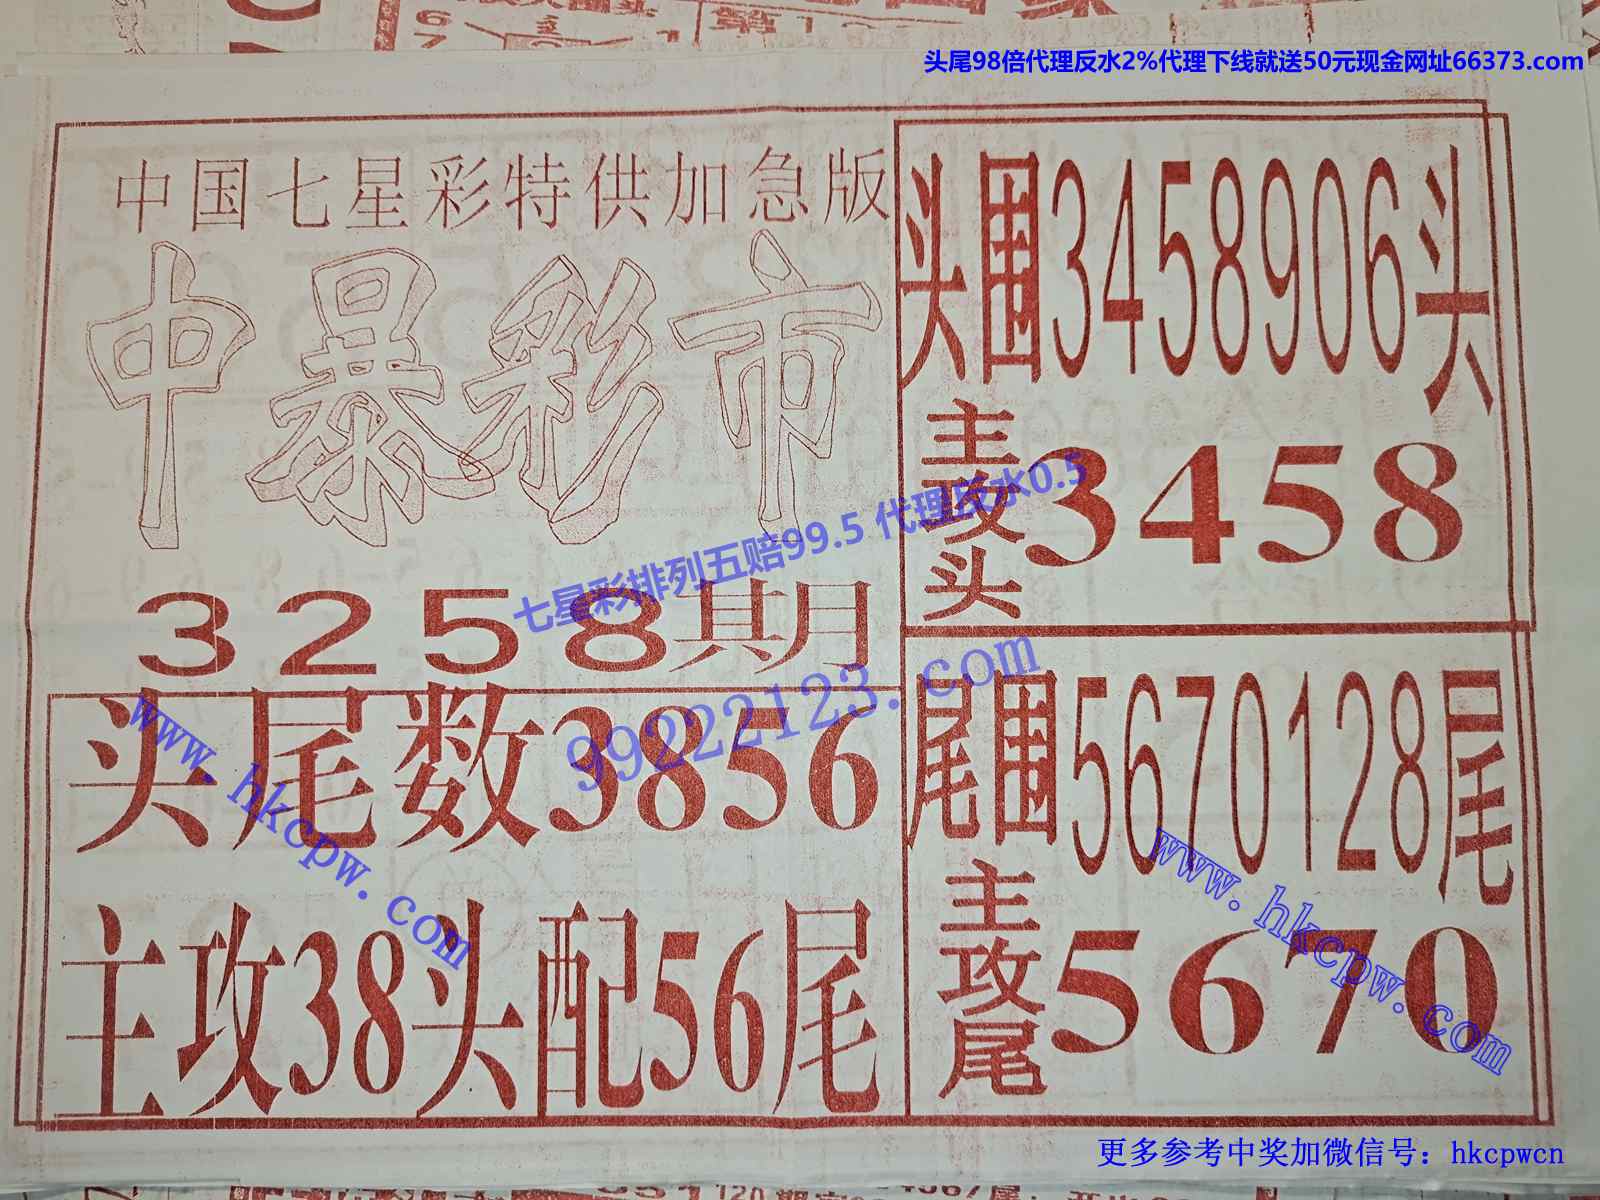 头尾98倍代理反水2%代理下线就送50元现金网址66373.com
中国七星彩特供加急版
中暴彩市
3258期
头尾数3856
主攻38头配56尾
头围3458906头
主攻头3458
尾围5670128尾
主攻尾5670
七星彩排列五赔99.5 代理反水0.5
99222123.com
www.hkcpw.com
www.hkcpw.com
更多参考中奖加微信号：hkcpwcn